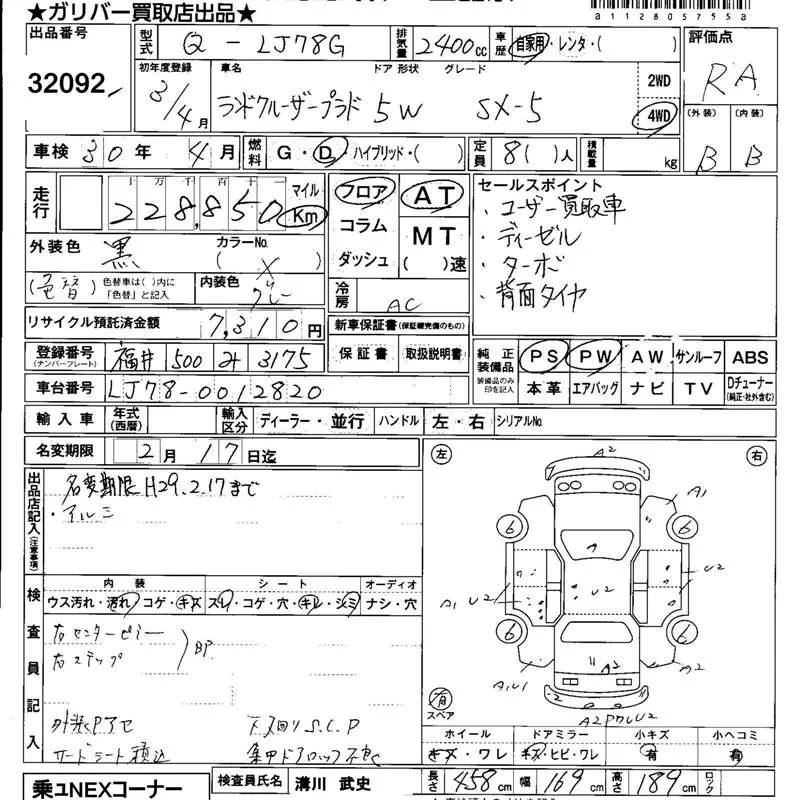 ★ガリバー買取店出品★
a11280575​55a
出品番号 32092
型式 Q-LJ78G 排気量 2400cc 車歴 自家用・レンタ・( )
評価点 RA
初年度登録 3/4月 車名 ランドクルーザープラド ドア 形状 5W グレード SX-5 2WD 4WD
(外装) B (内装) B
車検 30年 4月 燃料 G・D・ハイブリッド・( ) 定員 8( )人 積載量 kg
走行 十万千百十一 228,850 マイル Km
フロア コラム ダッシュ
AT MT ( )速
セールスポイント
・ユーザー買取車
・ディーゼル
・ターボ
・背面タイヤ
外装色 黒 カラーNo. ( )
(色替) 色替車は( )内に「色替」と記入 内装色 グレー
冷房 AC
リサイクル預託済金額 7,310円
新車保証書(保証継続可能のもの)
保証書 取扱説明書
登録番号(ナンバープレート) 福井 500 3175
純正装備品 PS PW AW サンルーフ ABS
装備品のみ印を記入 本革 エアバッグ ナビ TV Dチューナー(純正・社外含む)
車台番号 LJ78-0012820
輸入車 年式(西暦) 輸入区分 ディーラー・並行 ハンドル 左・右 シリアルNo.
名変期限 2月17日迄
出品店記入(注意事項)
名変期限H29.2.17まで
・アルミ
検査員記入
内装 シート オーディオ
ウス汚れ・汚れ・コゲ・キズ スレ・コゲ・穴・キレ・シミ ナシ・穴
右センターピラー
右ステップ
BP
外装P.アセ 下回りS.C.P
サードシート積込 集中ドアロック不良
左 右
A2
A1
6 6
U2
A1 U2
6 6
A1U1 A2
有 スペア
A2PワレU2
ホイール ドアミラー 小キズ 小ヘコミ
キズ・ワレ キズ・ヒビ・ワレ 有 有
乗ュNEXコーナー 検査員氏名 溝川 武史 長さ 458cm 幅 169cm 高さ 189cm ロック